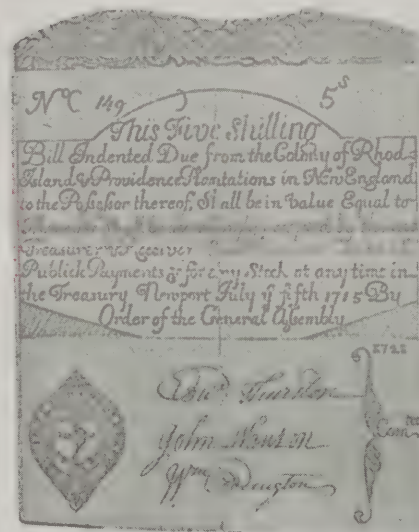 NoC 149 5s
This Five Shilling
Bill Indented Due from the Colony of Rhod-
Island & Providence Plantations in New England
to the Possessor thereof, Shall be in Value Equal to
Treasurer
Publick Payments & for any Stock at any time in
the Treasury Newport July ye fifth 1715 By
Order of the General Assembly
Edwd Thurston
John
Wm
Comtee